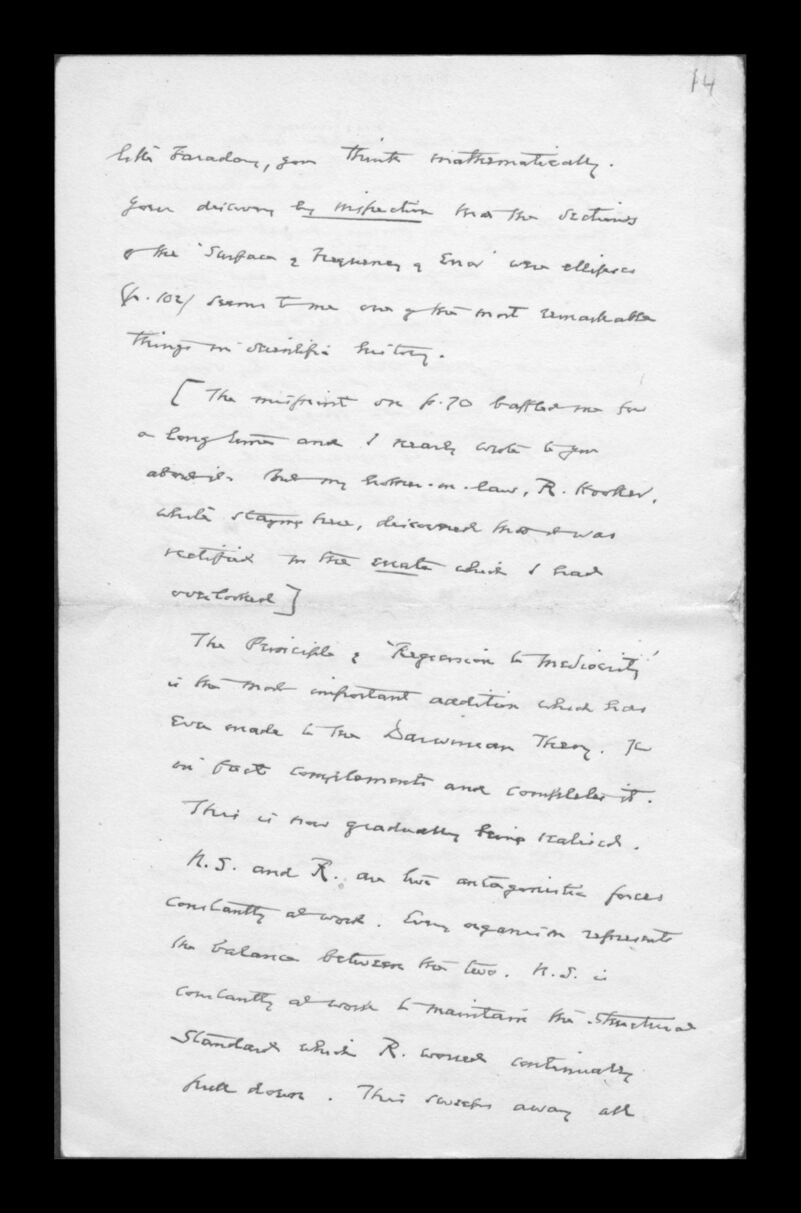 14
like Faraday, you think mathematically.
Your discovery by inspection that the sections
of the 'Surface of Frequency of Error' were ellipses
(p. 102) seems to me one of the most remarkable
things in scientific history.
[The misprint on p. 70 baffled me for
a long time and I nearly wrote to you
about it. But my brother-in-law, R. Hooker,
while staying here, discovered that it was
rectified in the errata which I had
overlooked]
The Principle of 'Regression to Mediocrity'
is the most important addition which has
ever made to the Darwinian Theory. It
in fact complements and completes it.
This is now gradually being realised.
N.S. and R. are two antagonistic forces
constantly at work. Every organism represents
the balance between the two. N.S. is
constantly at work to maintain the structural
standard which R. would continually
pull down. This sweeps away all